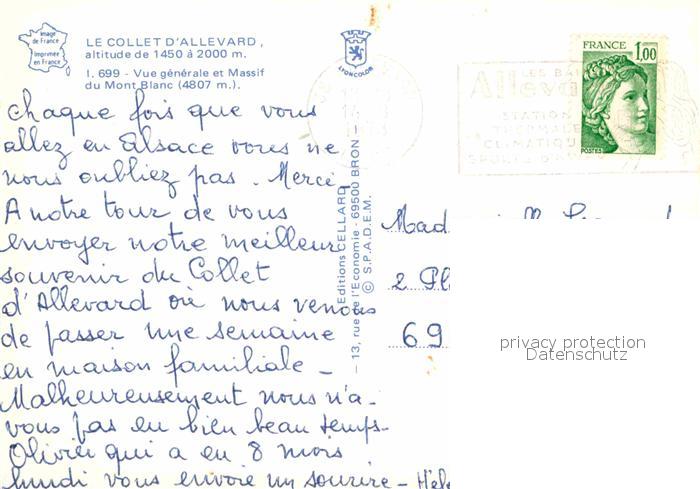 Image
de France
Imprimée
en France
LE COLLET D'ALLEVARD,
altitude de 1450 à 2000 m.
I. 699 - Vue générale et Massif
du Mont Blanc (4807 m.).
LYONCOLOR
FRANCE 1,00
POSTES
LES BA
Alleva
STATION
THERMALE
CLIMATIQU
SPORTS D'
Chaque fois que vous
allez en Alsace vous ne
nous oubliez pas. Merci
A notre tour de vous
envoyer notre meilleur
souvenir du Collet
d'Allevard où nous venons
de passer une semaine
en maison familiale -
Malheureusement nous n'a-
vons pas eu bien beau temps-
Olivier qui a eu 8 mois
lundi vous envoie un sourire - Hél
Editions CELLARD
- 13, rue de l'Economie - 69500 BRON -
© S.P.A.D.E.M.
Mad
2 Pl
69
privacy protection
Datenschutz